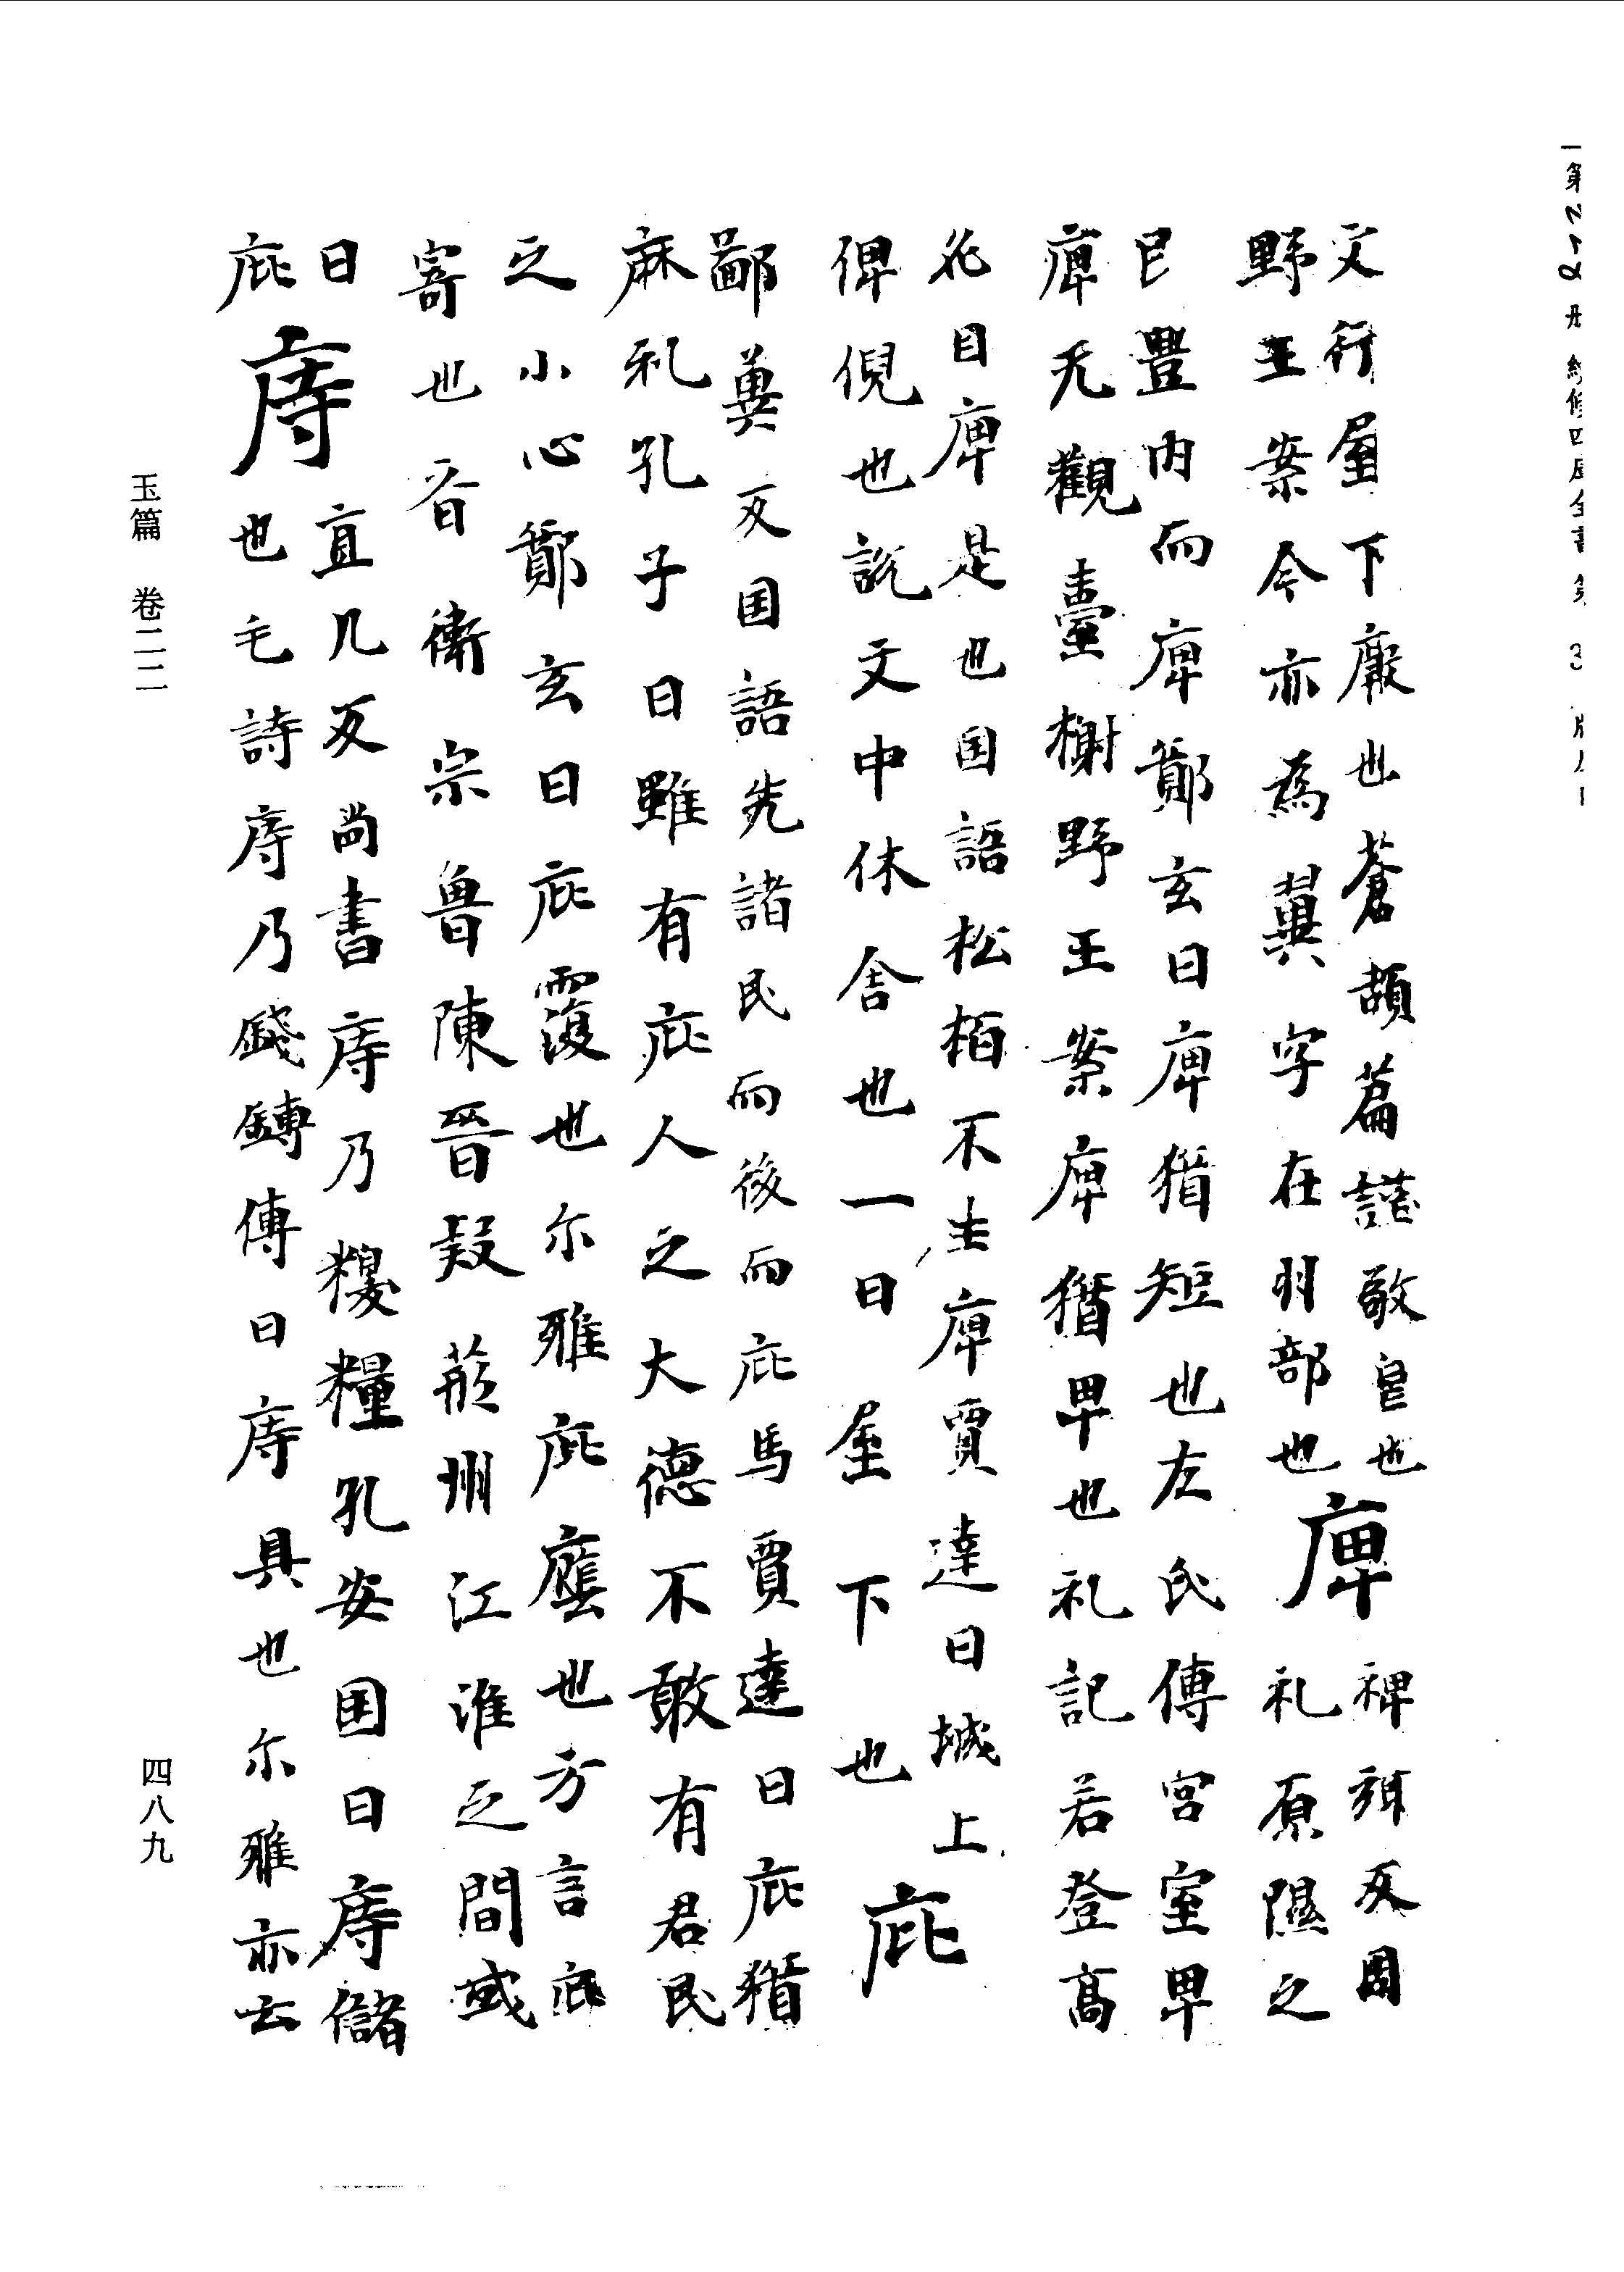 文行屋下廄也蒼頡篇謹敬皀也
野王案今亦為翼字在羽部也
庳
裨弭反周
礼原隰之
民豐肉而庳鄭玄曰庳猶短也左氏傳宮室卑
庳无觀臺榭野王案庳猶卑也礼記若登高
必自庳是也国語松栢不生庳賈逵曰城上
俾倪也説文中伏舍也一曰屋下也
庇
鄙冀反国語先諸民而後而庇馬賈逵曰庇猶
庥礼孔子曰雖有庇人之大德不敢有君民
之小心鄭玄曰庇覆也尓雅庇廕也方言庇
寄也晉衛宗魯陳晉荊州江淮之間或
曰庇
庤
直几反尚書庤乃糧孔安国曰庤儲
也毛詩庤乃錢鎛傳曰庤具也尓雅亦云
玉篇 卷二二
四八九